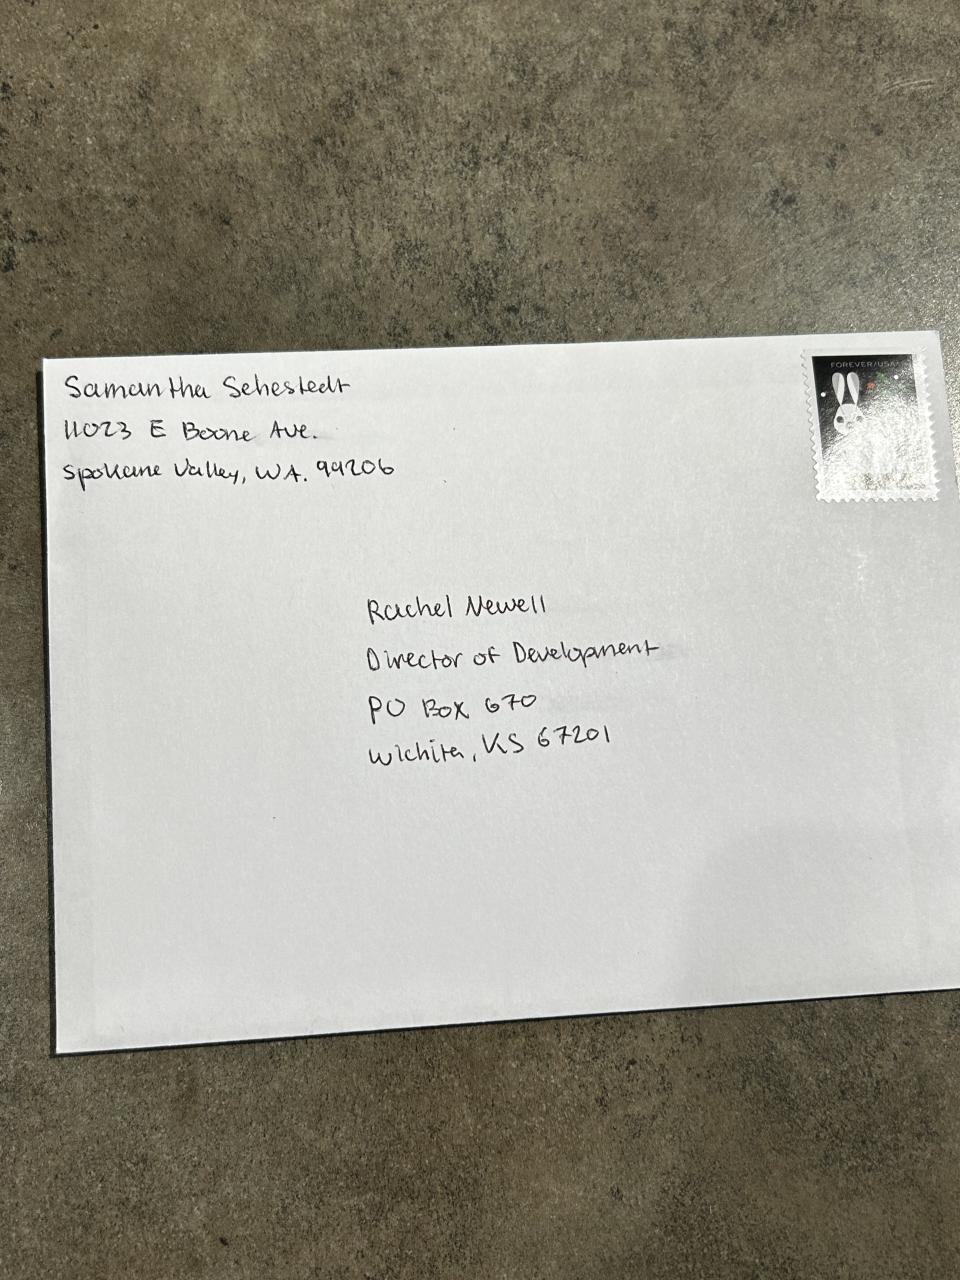 Samantha Sehestedt
11023 E Boone Ave.
Spokane Valley, WA. 99206
FOREVER/USA
Rachel Newell
Director of Development
PO Box 670
Wichita, KS 67201